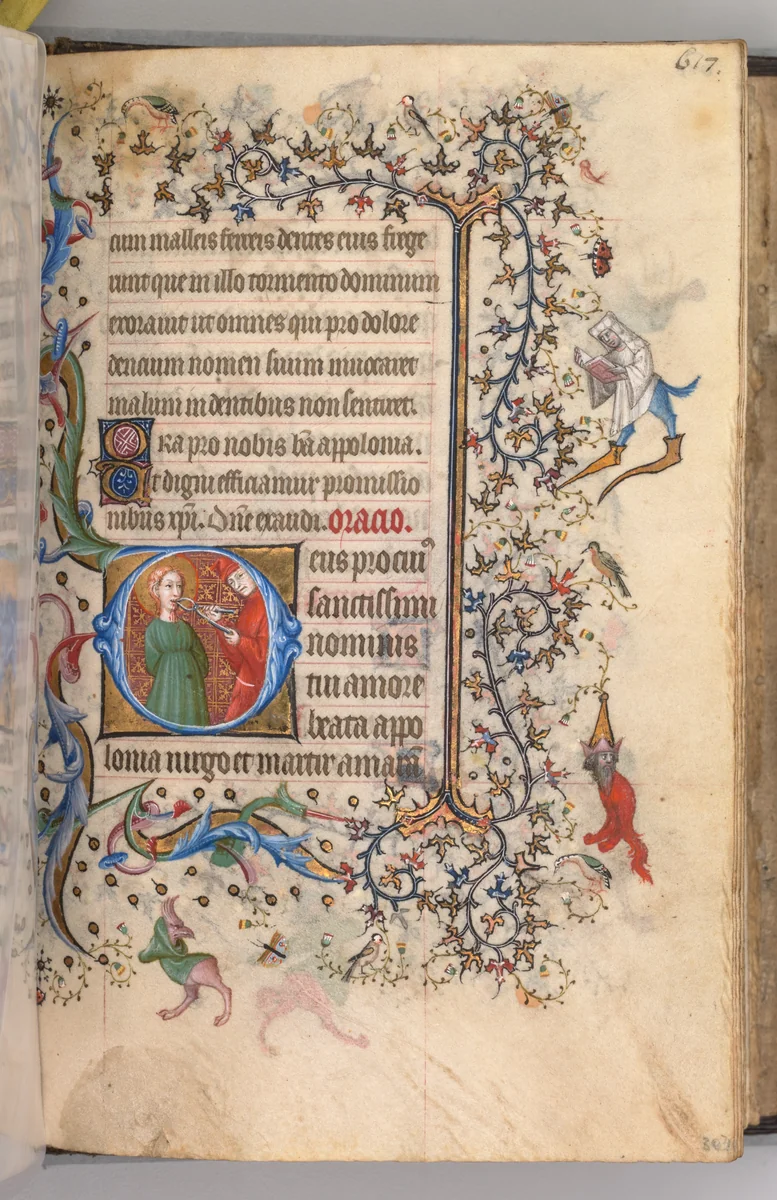 617.
cum malleis ferreis dentes eius frege
runt que in illo tormento dominum
exorauit ut omnes qui pro dolore
dencium nomen suum inuocaret
malum in dentibus non sentiret.
Ora pro nobis bã appolonia.
Et digni efficiamur promissio
nibus xpi. Dñe exaudi. oracio.
eus procui9
sanctissimi
nominis
tui amore
beata appo
lonia uirgo et martir amaram